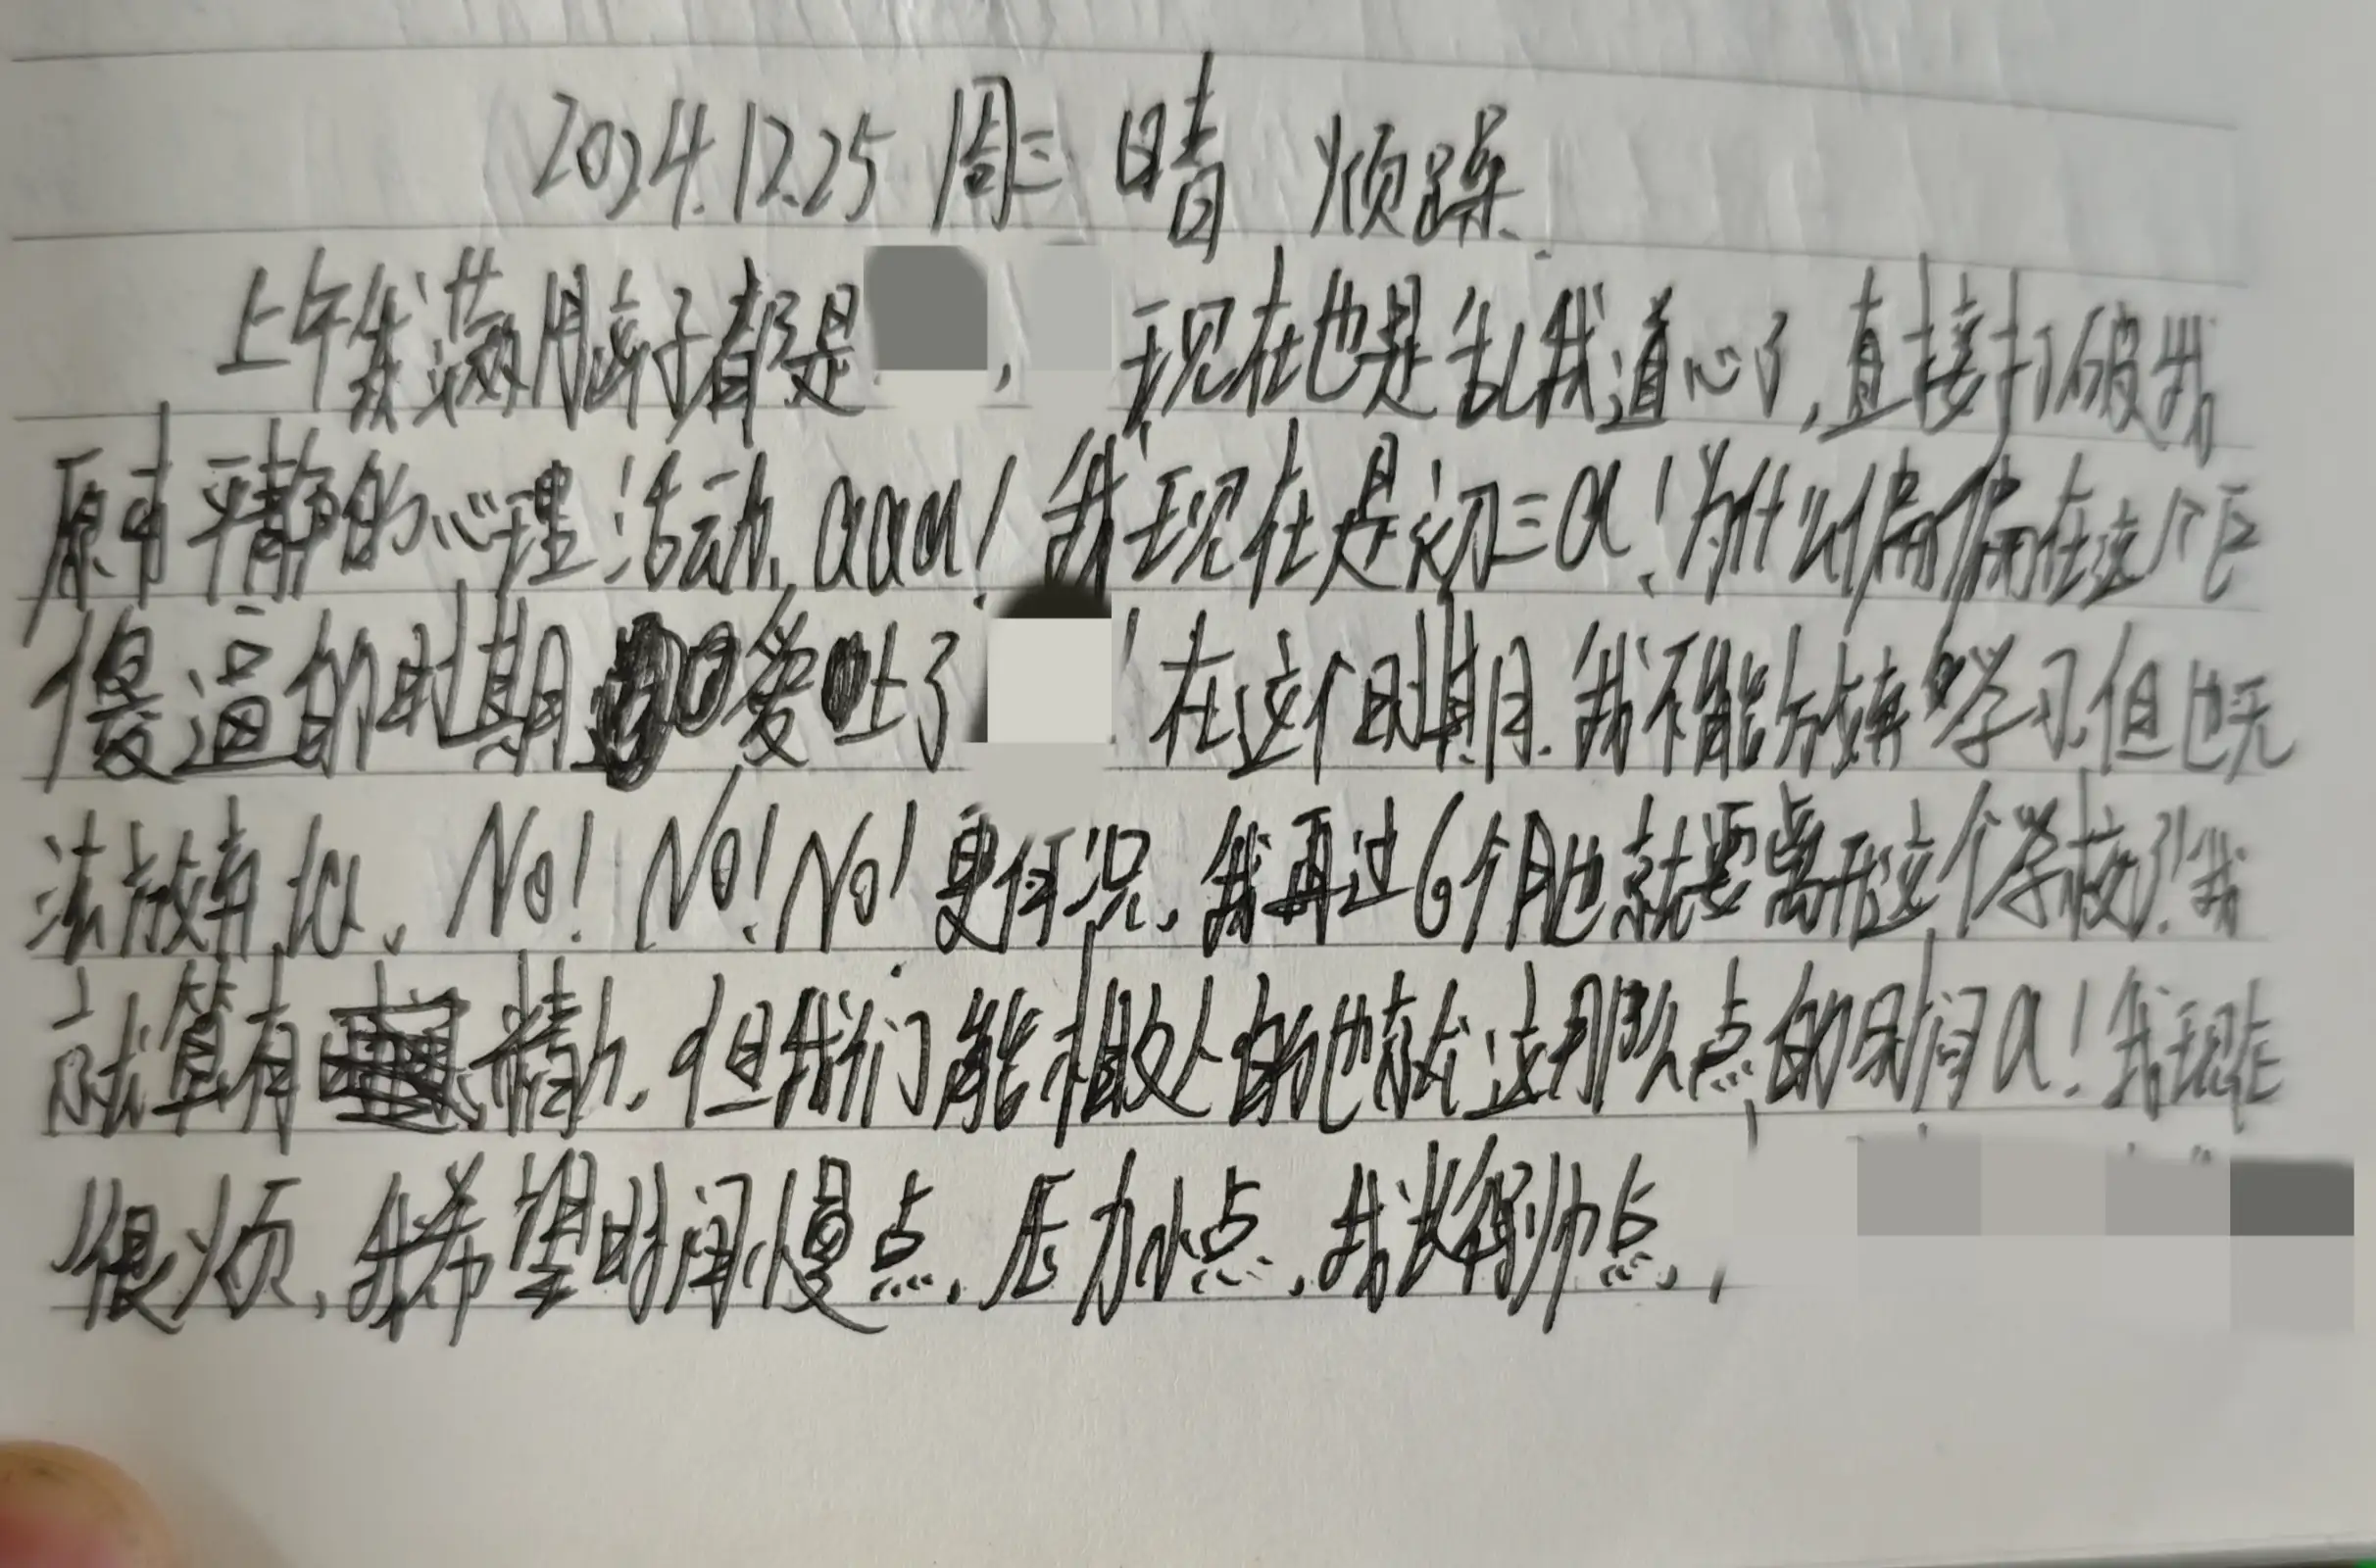 2024.12.25 周三 晴 烦躁.
上午我满脑子都是 , 现在也是乱我道心了,直接打破我
原本平静的心理活动,aaa!我现在是初三a!为什么偏偏在这个巨
傻逼的时期 爱上了 !在这个时期.我不能放弃学习,但也无
法放弃 ta. No! No! No! 更何况,我再过6个月也就要离开这个学校了!我
就算有 情,但我们能相处的也就这那么点的时间a!我现在
很烦,我希望时间慢点.压力小点,我长得帅点,